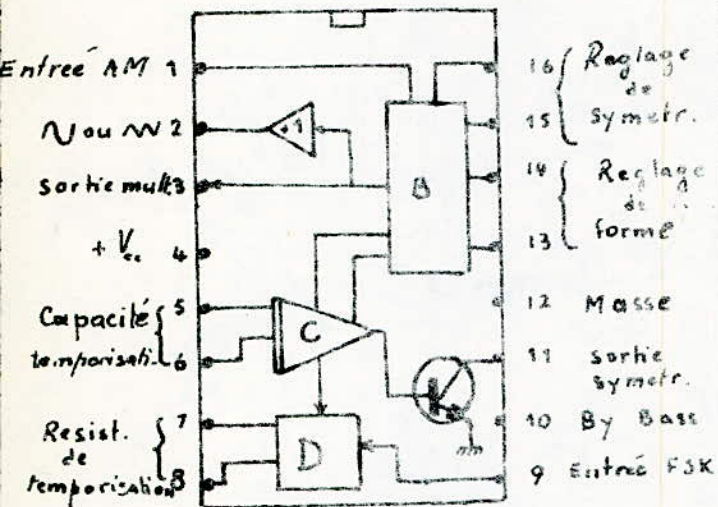 Entreé AM 1
ou 2
sortie mult. 3
+ Vcc 4
Capacité 5
temporisati. 6
Resist. 7
de
temporisation 8
+1
B
C
D
16 Reglage
de
15 Symetr.
14 Reglage
de
13 forme
12 Masse
11 sortie
symetr.
10 By Bass
9 Entrée FSK